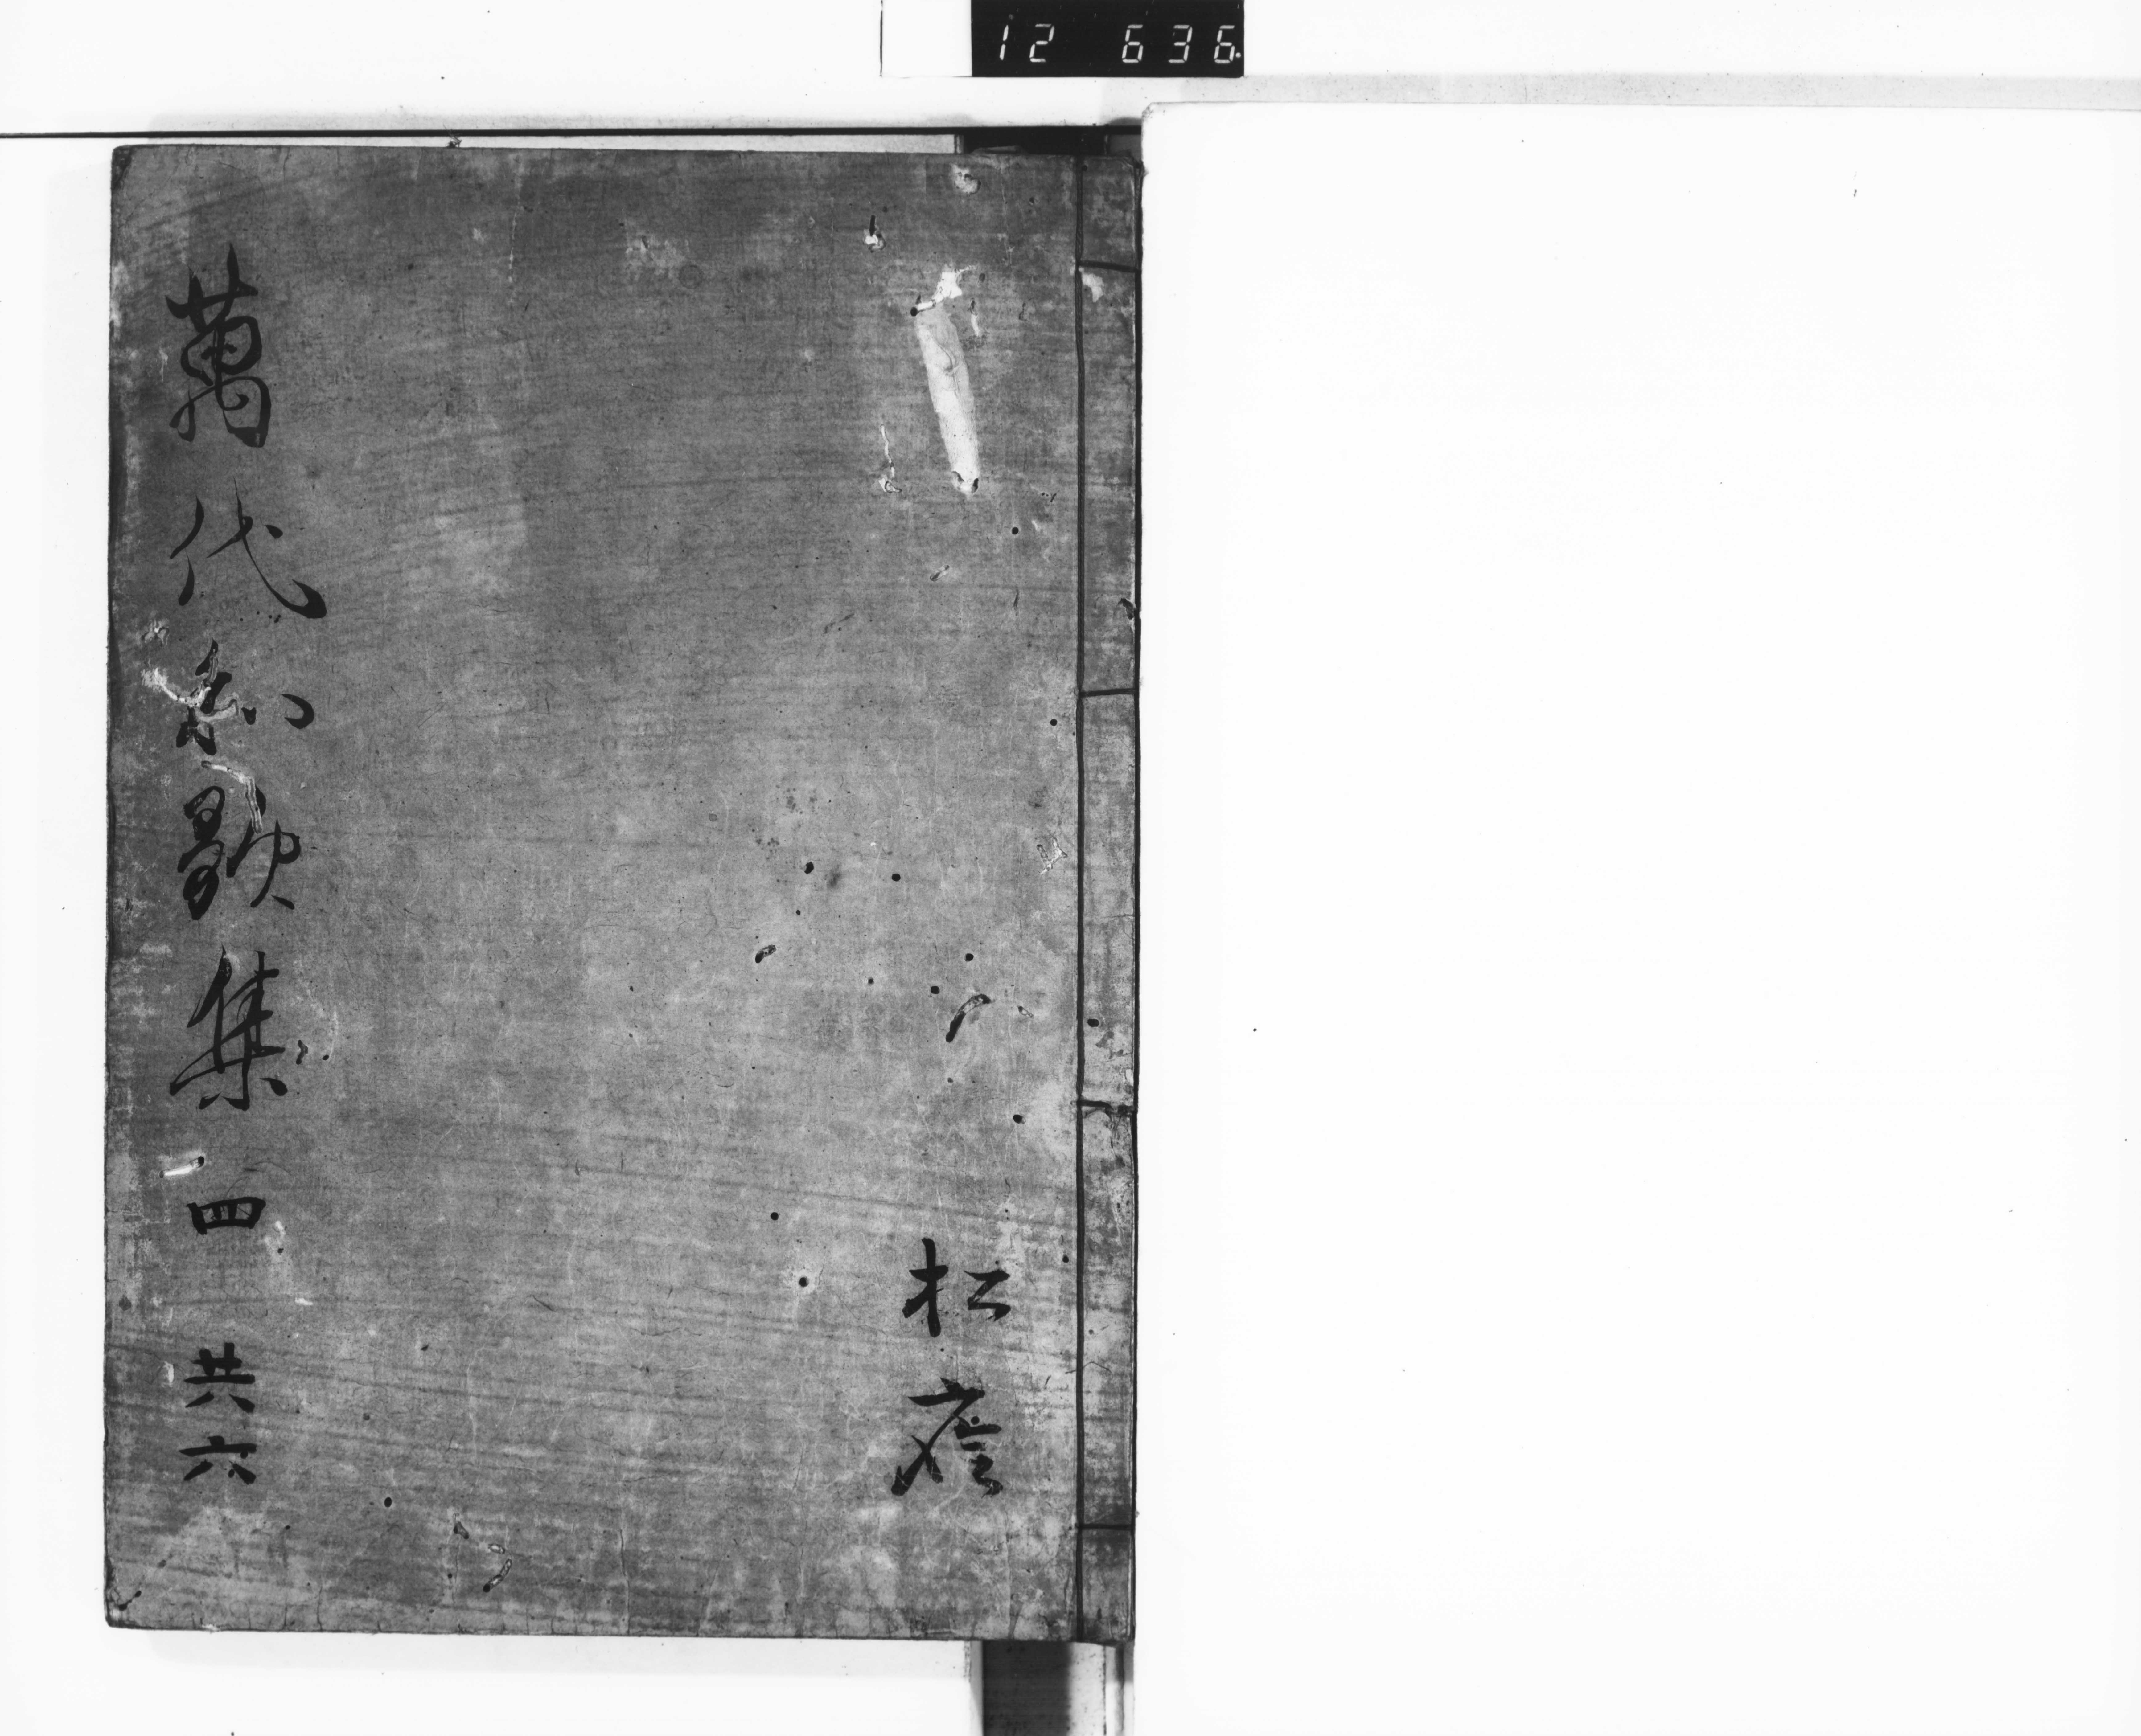 12 636
松
萬代和歌集 四 共六